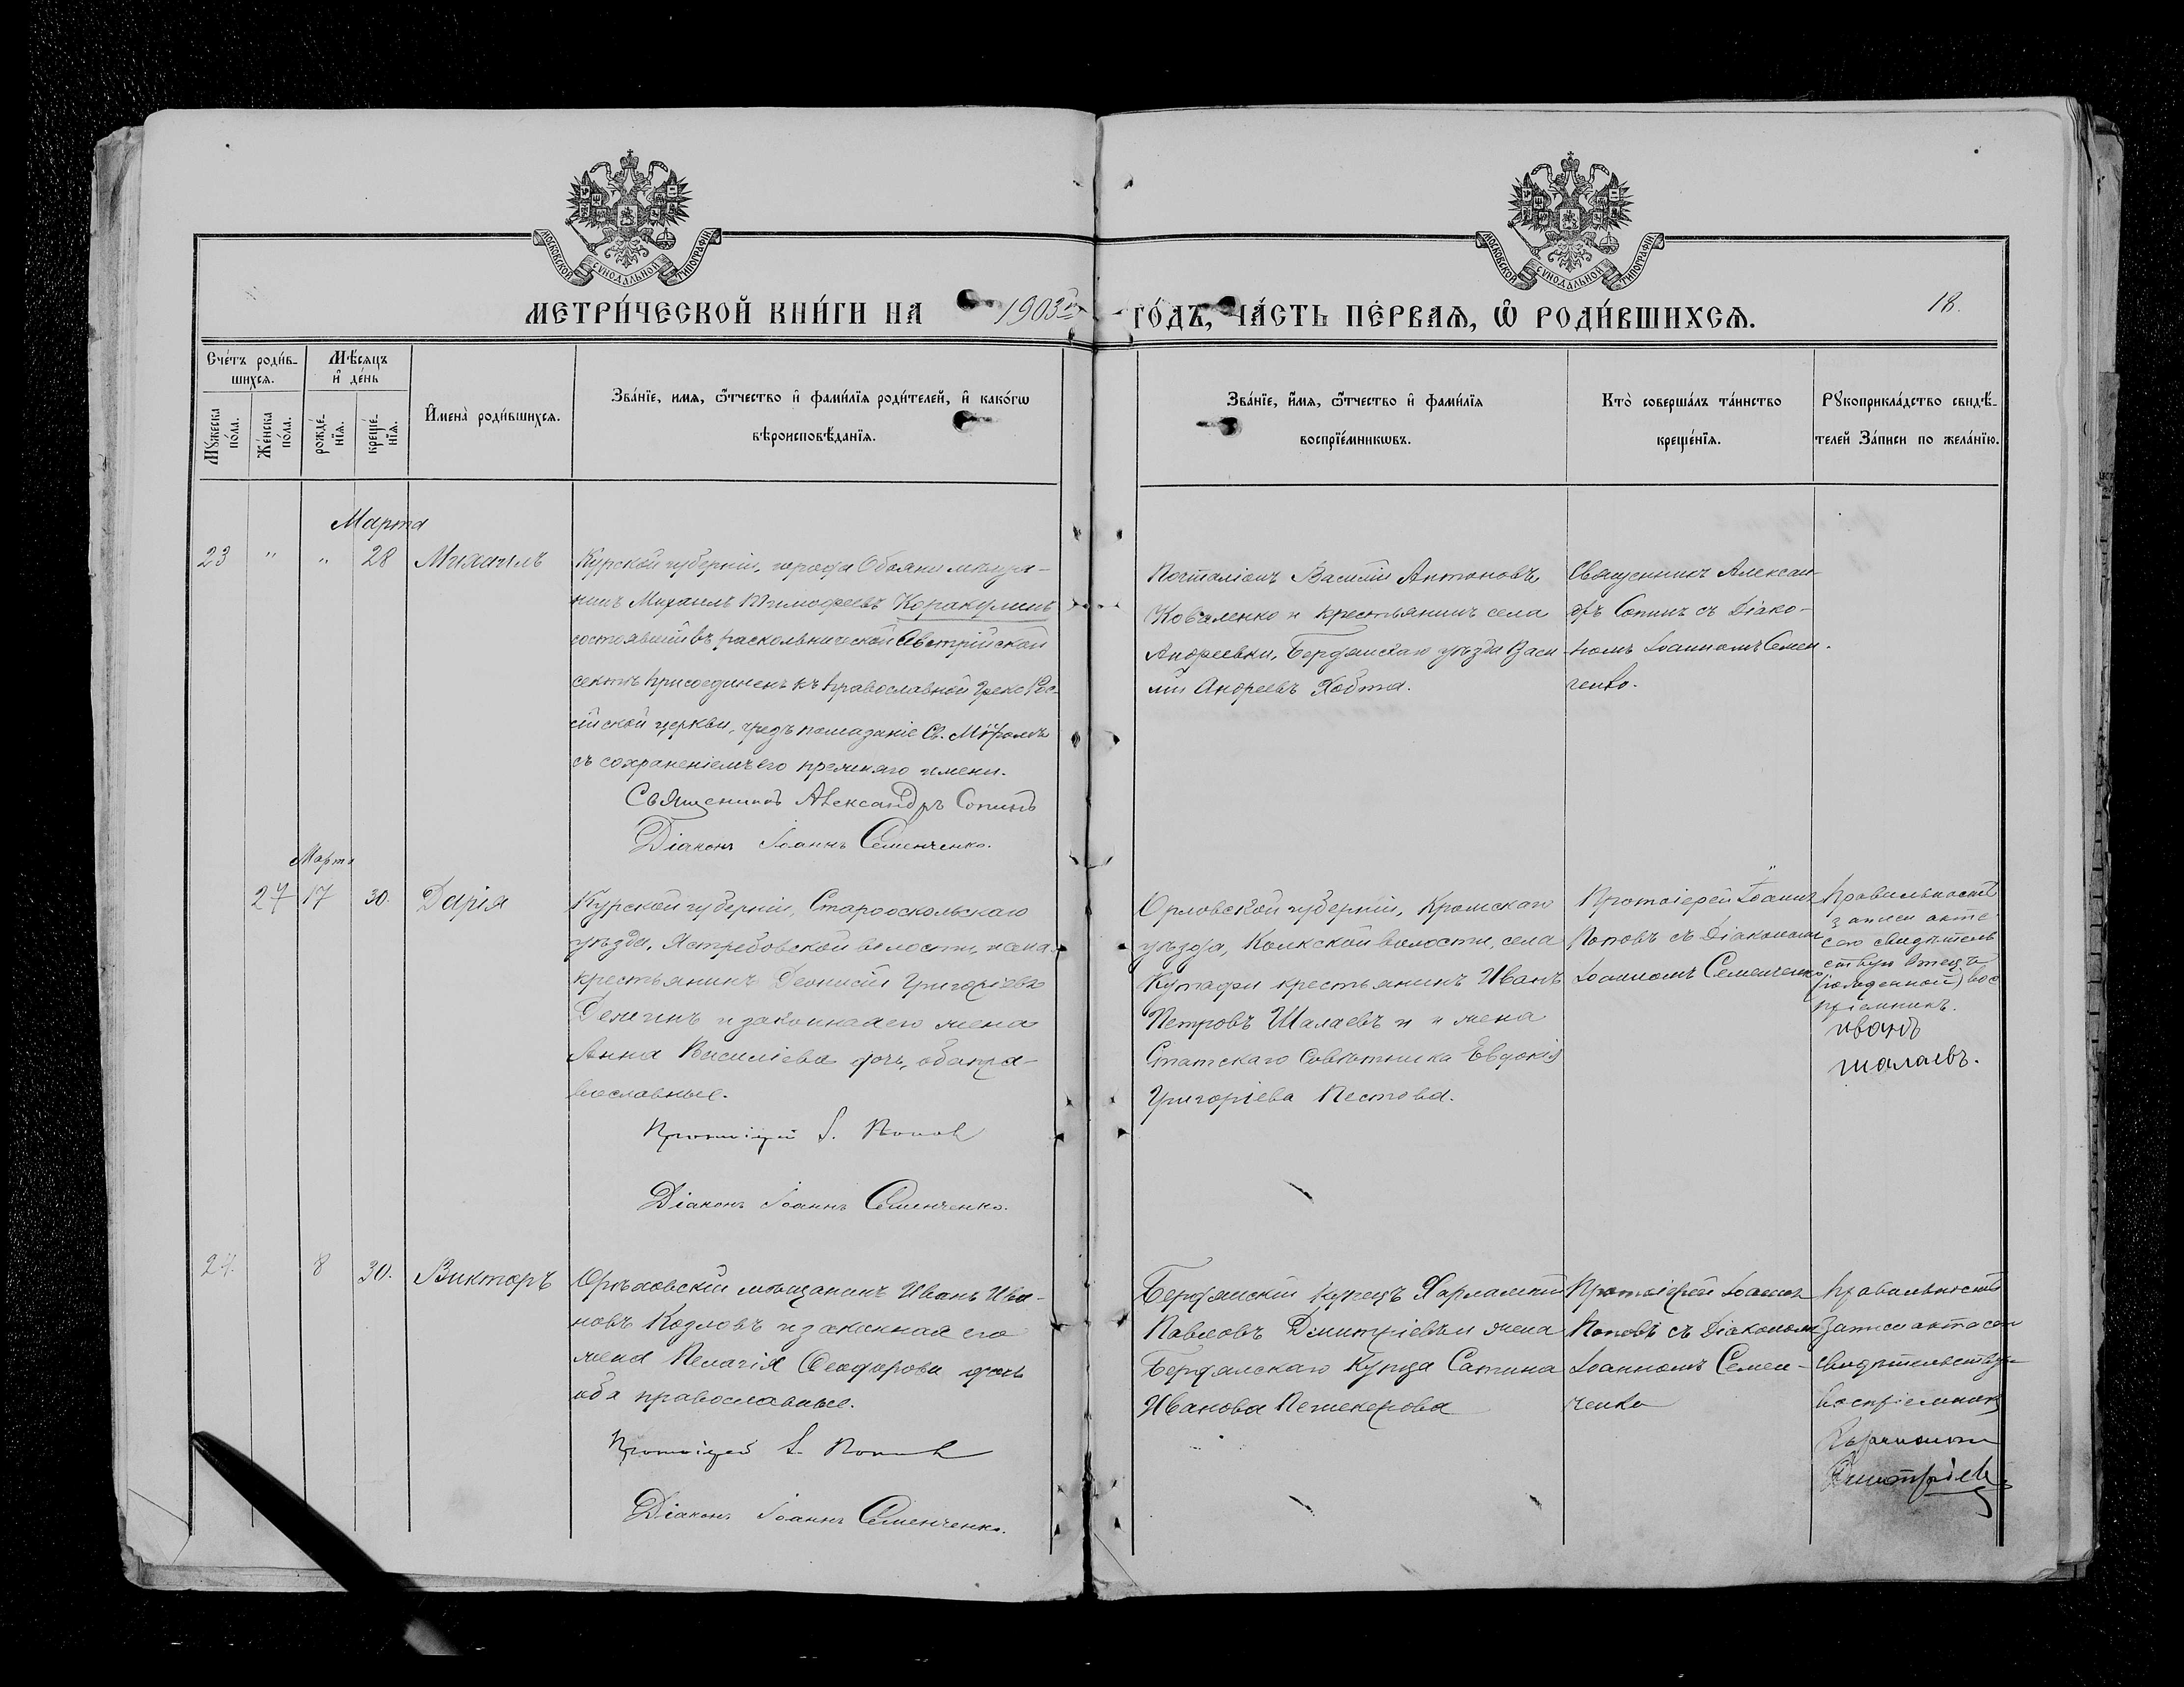 МОСКОВСКОЙ СѴНОДАЛЬНОЙ ТИПОГРАФІИ
МОСКОВСКОЙ СѴНОДАЛЬНОЙ ТИПОГРАФІИ
МЕТРИ́ЧЕСКОЙ КНИ́ГИ НА 1903й
ГО́ДЪ, ЧА́СТЬ ПЕ́РВАѦ, Ѡ҆ РОДИ́ВШИХСѦ.
18.
Сче́тъ роди́в-
шихсѧ.
Мѣ́сѧцъ
и҆ де́нь
Мꙋ́жеска
по́ла.
Же́нска
по́ла.
рожде́-
нїѧ.
креще́-
нїѧ.
И҆мена̀ роди́вшихсѧ.
Зва́нїе, имѧ, ѻ҆́тчество и҆ фами́лїѧ роди́телей, и҆ како́гѡ
вѣроисповѣ́данїѧ.
Зва́нїе, и҆́мѧ, ѻ҆́тчество и҆ фами́лїѧ
воспрїе́мникѡвъ.
Кто̀ соверша́лъ та́инство
креще́нїѧ.
Рꙋкоприкла́дство свидѣ́-
телей За́писи по жела́нїю.
Марта
23 " " 28 Михаилъ
Курской губерніи, города Обояни мѣща-
нинъ Михаилъ Тимофеевъ Каракулинъ
состоявшій въ раскольнической Австрійской
сектѣ присоединенъ къ православной Греко Рос-
сійской церкви, чрезъ помазаніе Св. Мѵромъ
съ сохраненіемъ его прежняго имени.
Священникъ Александръ Сопинъ
Діаконъ Іоаннъ Семенченко.
Почталіонъ Василій Антоновъ
Коваленко и крестьянинъ села
Андреевки, Бердянскаго уѣзда Васи
лій Андреевъ Хобта.
Священникъ Алексан-
дръ Сопинъ съ Діако-
номъ Іоанномъ Семен-
ченко.
Марта
27 17 30. Дарія
Курской губерніи, Старооскольскаго
уѣзда, Ястребовской волости,
крестьянинъ Деонисій Григоріевъ
и законная его жена
Анна Василіева дочь, оба пра-
вославные.
Протоіерей І. Поповъ
Діаконъ Іоаннъ Семенченко.
Орловской губерніи, Кромскаго
уѣзда, волости, села
крестьянинъ Иванъ
Петровъ Шалаевъ и жена
Статскаго Совѣтника Евдокія
Григоріева Пестова.
Протоіерей Іоаннъ
Поповъ съ Діакономъ
Іоанномъ Семенченко
Правильность
записи акта
сего свидѣтель
ствую
(рожденной) вос
пріемникъ.
иванъ
шалаевъ.
24. 8 30. Викторъ
Орѣховскій мѣщанинъ Иванъ Ива-
новъ Козловъ и законная его
жена Пелагія Ѳеодорова дочь
оба православные.
Протоіерей І. Поповъ
Діаконъ Іоаннъ Семенченко.
Бердянскій купецъ Харлампій
Павловъ Дмитріевъ и жена
Бердянскаго Купца
Иванова
Протоіерей Іоаннъ
Поповъ съ Діакономъ
Іоанномъ Семен-
ченко
Правильность
Записи акта сего
свидѣтельствую
воспріемникъ
Дмитріевъ